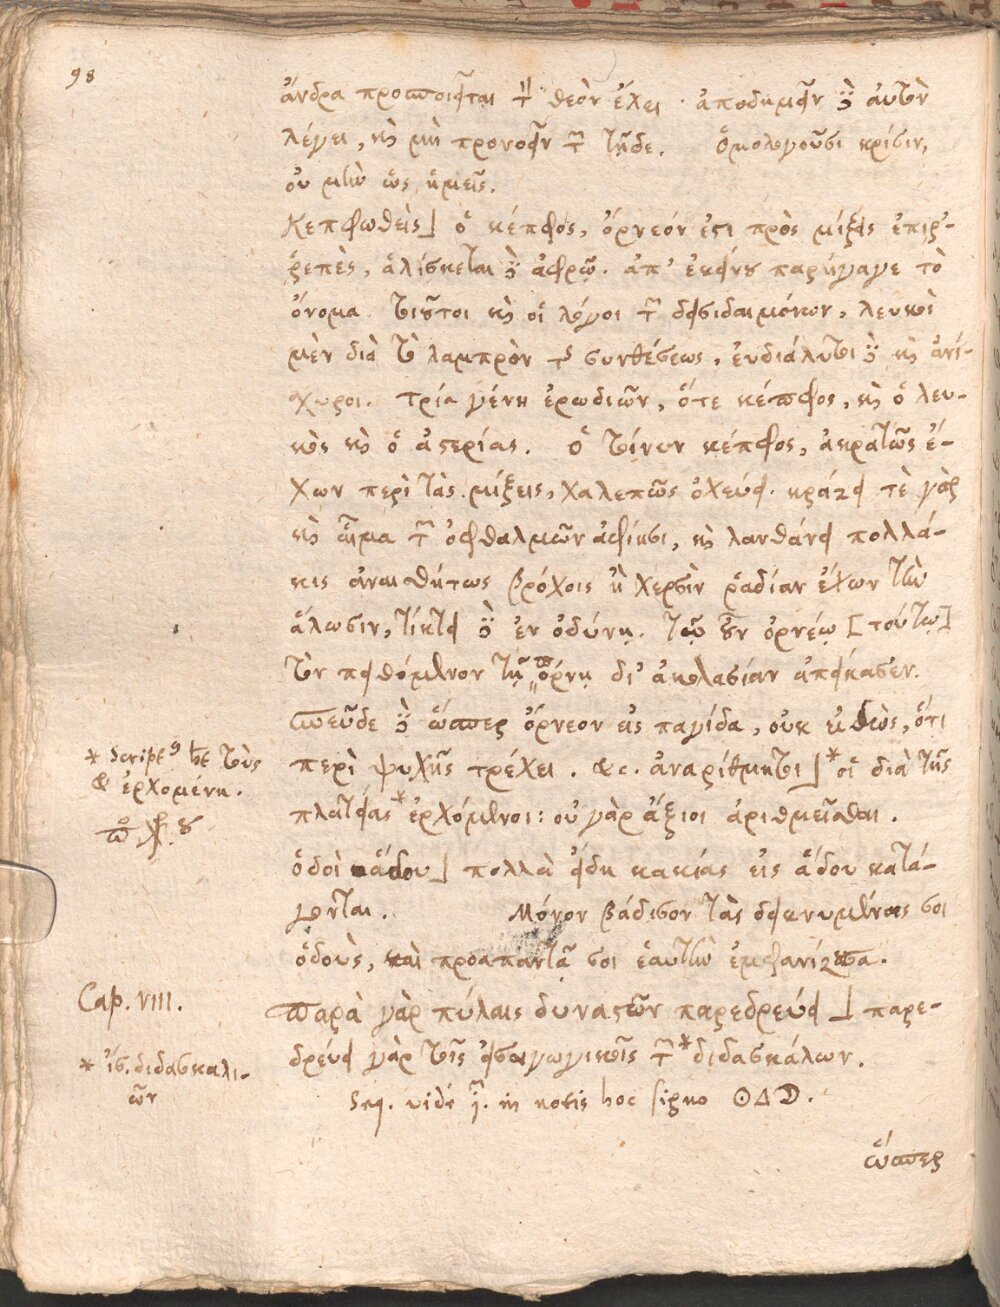 98
ἄνδρα προσποιεῖται τὸν θεὸν ἔχει · ἀποδημεῖν δὲ αὐτὸν
λέγει, καὶ μὴ προνοεῖν τῶν τῇδε. ὁμολογοῦσι κρίσιν,
οὐ μὴν ὡς ἡμεῖς.
Κεπφωθεὶς] ὁ κέπφος, ὄρνεόν ἐστι πρὸς μίξεις ἐπιρ-
ῥεπὲς, ἁλίσκεται δὲ ἀφρῷ. ἀπ' ἐκείνου παρήγαγε τὸ
ὄνομα. τοιοῦτοι καὶ οἱ λόγοι τῶν δεισιδαιμόνων, λευκοὶ
μὲν διὰ τὸ λαμπρὸν τῆς συνθέσεως, εὐδιάλυτοι δὲ καὶ ἀνί-
χυροι. τρία γένη ἐρωδιῶν, ὅτε κέπφος, καὶ ὁ λευ-
κὸς καὶ ὁ ἀστερίας. ὁ τοίνυν κέπφος, ἀκρατῶς ἔ-
χων περὶ τὰς μίξεις, χαλεπῶς ὀχεύει. κράζει τὲ γὰρ
καὶ αἷμα τῶν ὀφθαλμῶν ἀφίησι, καὶ λανθάνει πολλά-
κις ἀναισθήτως βρόχοις ἢ χερσὶν ῥαδίαν ἔχων τὴν
ἅλωσιν, τίκτει δὲ ἐν ὀδύνῃ. τῷ οὖν ὀρνέῳ [τούτῳ]
τὸν πειθόμενον τῇ πόρνῃ δι' ἀκολασίαν ἀπείκασεν.
σπεῦδε δὲ ὥσπερ ὄρνεον εἰς παγίδα, οὐκ εἰδὼς, ὅτι
περὶ ψυχῆς τρέχει. &c. ἀναρίθμητοι] * οἱ διὰ τῆς
πλατείας * ἐρχόμενοι: οὐ γὰρ ἄξιοι ἀριθμεῖσθαι.
* Script9 hēt τοὺς
& ἐρχομένη.
ὁδοὶ ἅδου] πολλὰ εἴδη κακίας εἰς ἅδου κατά-
γονται. Μόνον βάδισον τὰς δεικνυμένας σοι
ὁδοὺς, καὶ προαπαντᾷ σοι ἑαυτὴν ἐμφανίζουσα.
Cap. VIII.
παρὰ γὰρ πύλαις δυναστῶν παρεδρεύει] παρε-
δρεύει γὰρ τοῖς εἰσαγωγικοῖς τῶν * διδασκάλων.
* ἴσ. διδασκαλι-
ῶν
Seq. vide in notis hoc signo ΘΔD.
ὥσπερ